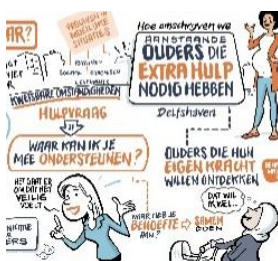 AR?
VROUWEN IN
MOEILIJKE
SITUATIES
KWETSBARE OMSTANDIGHEDEN
HULPVRAAG
WAAR KAN IK JE
MEE ONDERSTEUNEN?
HET GAAT ER
OM DAT HET
VEILIG
VOELT
ERS
Hoe omschrijven we
AANSTAANDE
OUDERS DIE
EXTRA HULP
NODIG HEBBEN
Delfshaven
OUDERS DIE HUN
EIGEN KRACHT
WILLEN ONTDEKKEN
WAAR HEB JE
BEHOEFTE
AAN?
SAMEN
DOEN
DAT WIL
IK WEL...